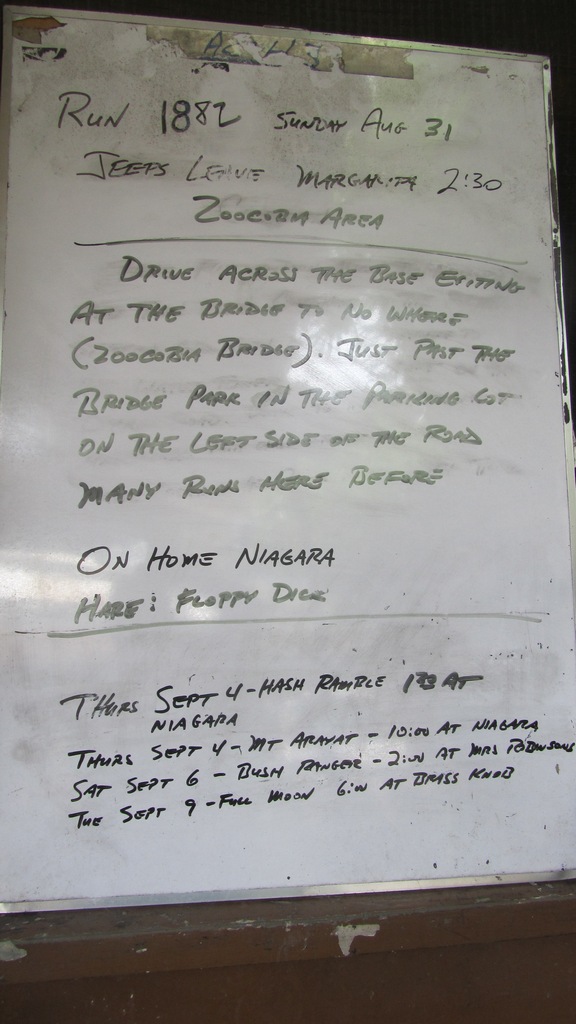 RUN 1882 SUNDAY AUG 31
JEEPS LEAVE MARGARITA 2:30
ZOOCOBIA AREA
DRIVE ACROSS THE BASE EXITING
AT THE BRIDGE TO NO WHERE
(ZOOCOBIA BRIDGE). JUST PAST THE
BRIDGE PARK IN THE PARKING LOT
ON THE LEFT SIDE OF THE ROAD
MANY RUNS HERE BEFORE
ON HOME NIAGARA
HARE: FLOPPY DICK
THURS SEPT 4 - HASH RAMBLE AT
NIAGARA
THURS SEPT 4 - MT ARAYAT - 10:00 AT NIAGARA
SAT SEPT 6 - BUSH RANGER - 2:00 AT MRS ROBINSONS
TUE SEPT 9 - FULL MOON 6:00 AT BRASS KNOB